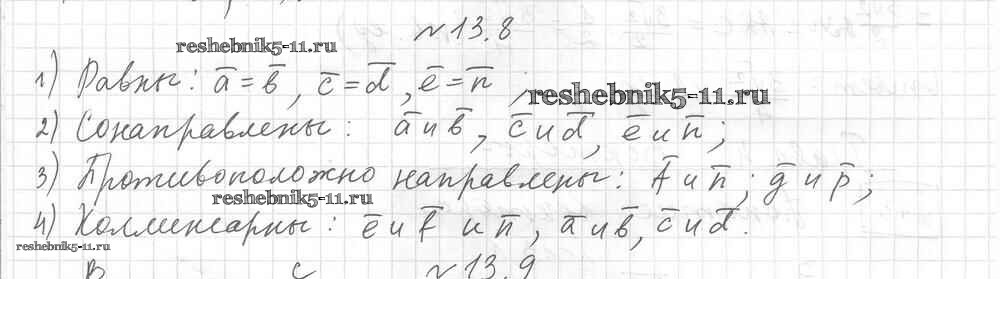 №13.8
reshebnik5-11.ru
1) Равны: a̅ = b̅, c̅ = d̅, e̅ = n̅
reshebnik5-11.ru
2) Сонаправлены: a̅ и b̅, c̅ и d̅, e̅ и n̅;
3) Противоположно направлены: f̅ и n̅; g̅ и p̅;
reshebnik5-11.ru
4) Коллинеарны: e̅ и f̅ и n̅, a̅ и b̅, c̅ и d̅.
reshebnik5-11.ru
B C №13.9